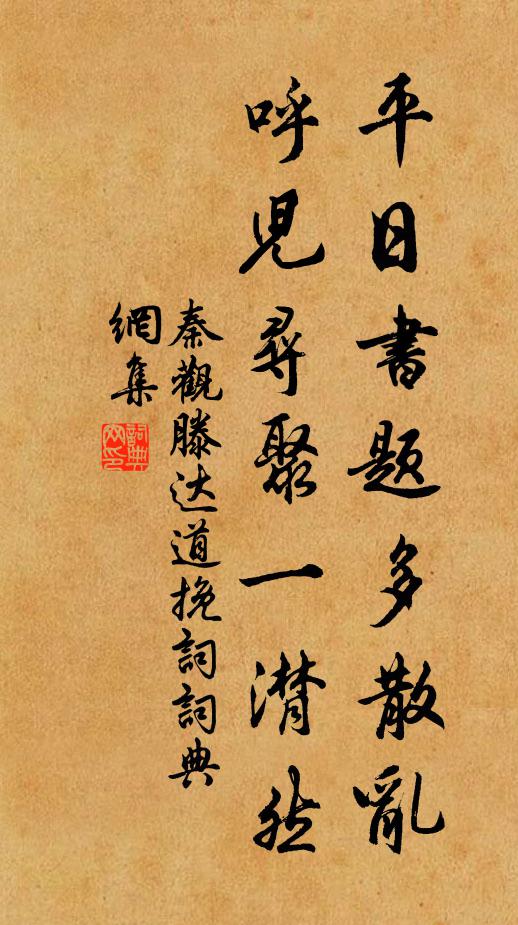 平日書題多散亂
呼兒尋聚一潸然
秦觀滕达道挽詞詞典
網集
詞典
网印